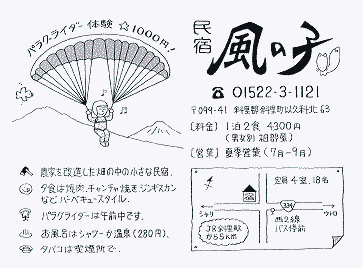 パラグライダー体験 ☆1000円!
民宿
風の子
☎ 01522-3-1121
〒099-41 斜里郡斜里町以久科北63
[料金] 1泊2食 4300円
(男女別 相部屋)
[営業] 夏季営業(7月〜9月)
農家を改造した畑の中の小さな民宿.
夕食は焼肉、チャンチャン焼き、ジンギスカン
などバーベキュースタイル.
パラグライダーは午前中です.
お風呂はシャワーか温泉(280円).
タバコは喫煙所で.
定員 4室、18名
シャリ
334
ウトロ
JR斜里駅
から5km
西2線
バス停前